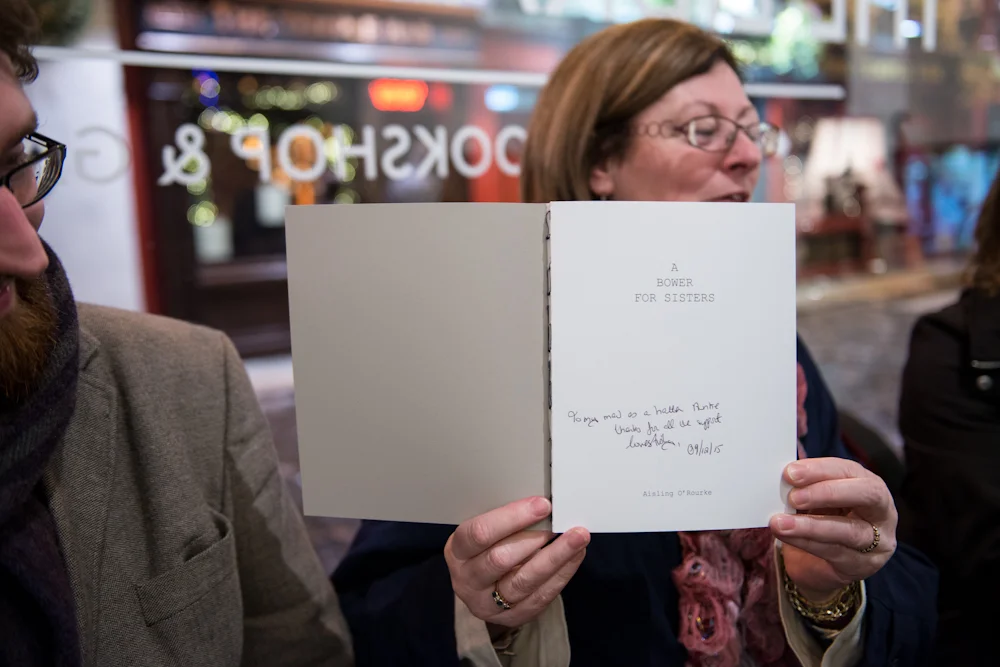 BOOKSHOP &
A
BOWER
FOR SISTERS
To my mad as a hatter
thanks for all the support
09/12/15
Aisling O'Rourke